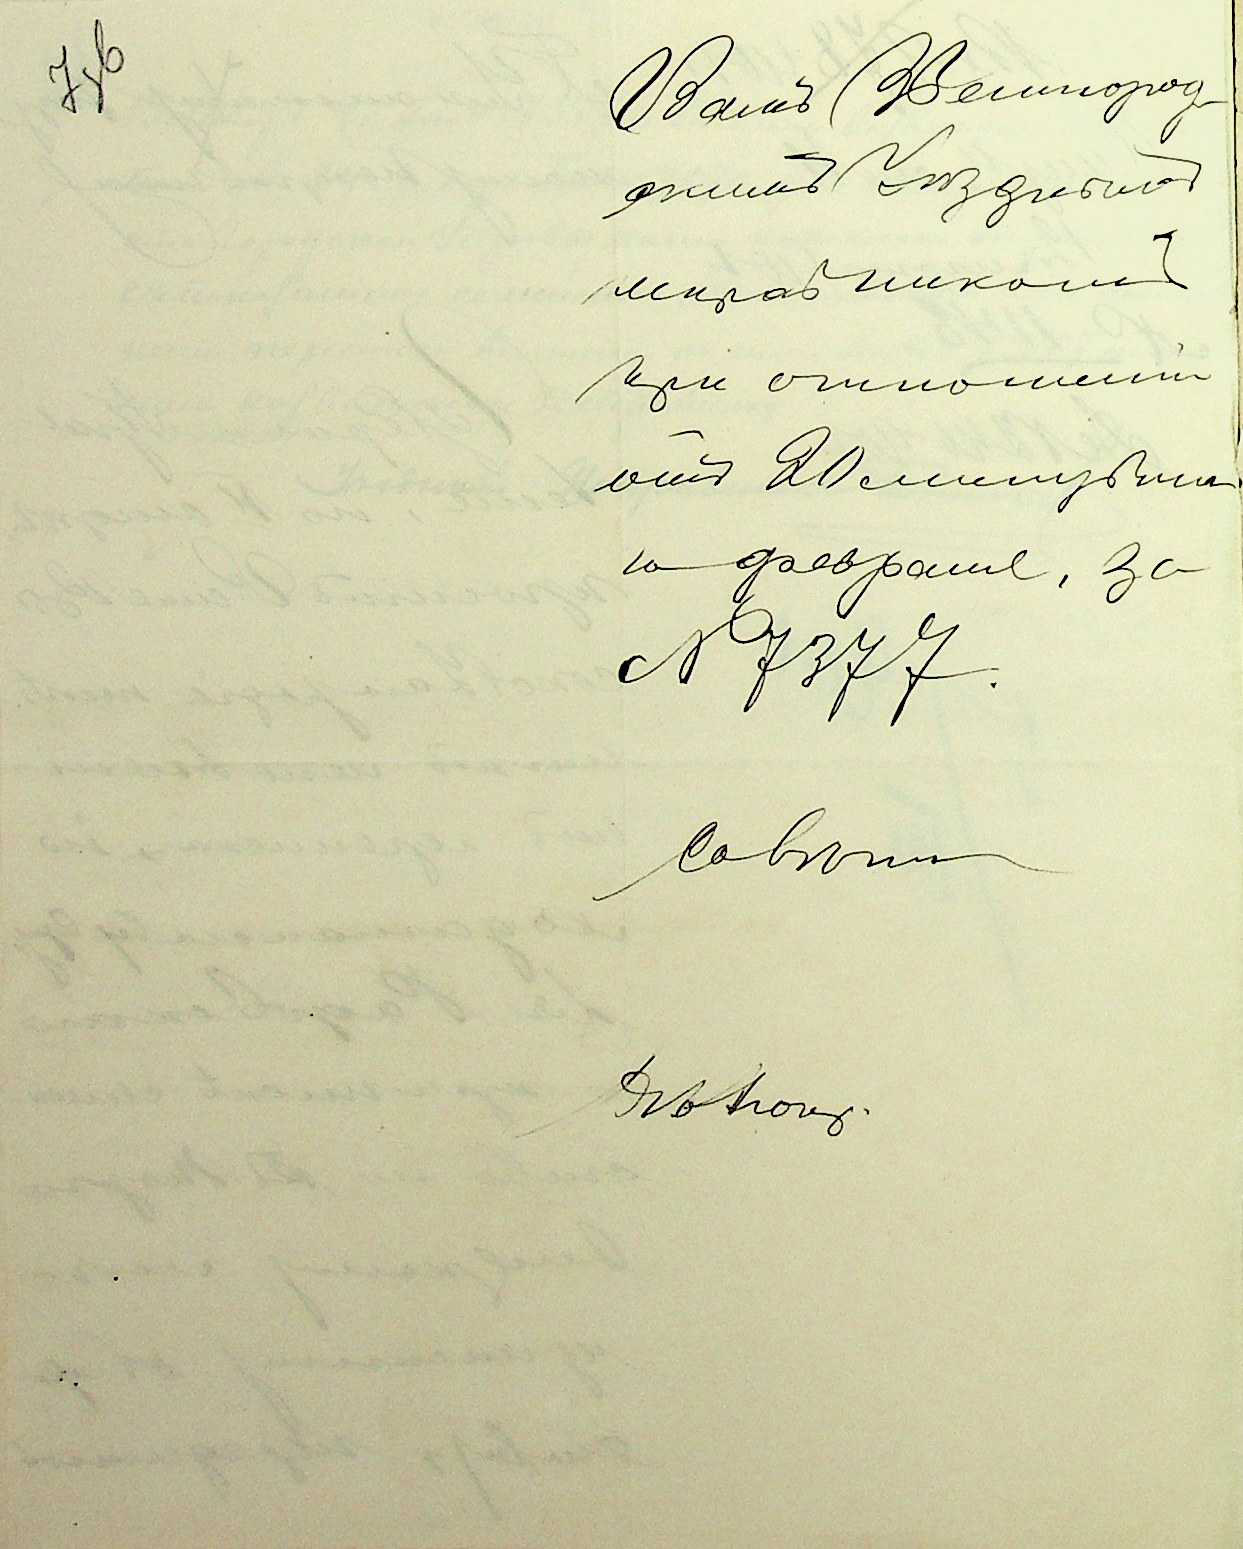 7 об
Вамъ Звенигород
скимъ Уѣзднымъ
исправникомъ
при отношеніи
отъ 20 минувша
го февраля, за
№ 7377.